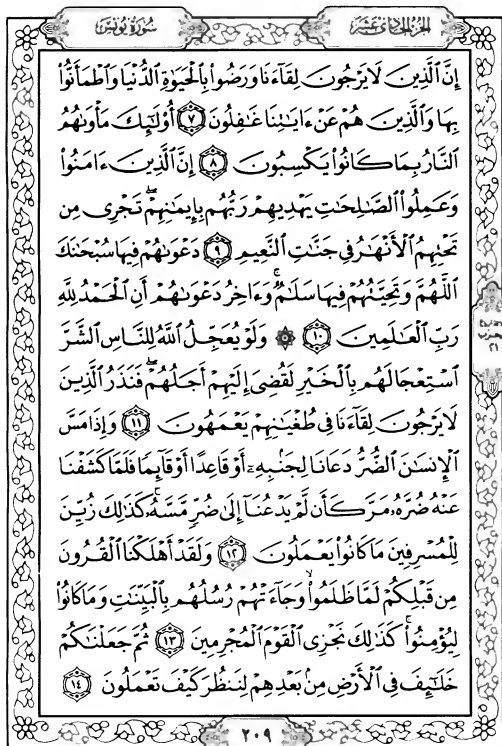 الجزء الحادي عشر
سورة يونس
إِنَّ ٱلَّذِينَ لَا يَرۡجُونَ لِقَآءَنَا وَرَضُواْ بِٱلۡحَيَوٰةِ ٱلدُّنۡيَا وَٱطۡمَأَنُّواْ
بِهَا وَٱلَّذِينَ هُمۡ عَنۡ ءَايَٰتِنَا غَٰفِلُونَ ٧ أُوْلَٰٓئِكَ مَأۡوَىٰهُمُ
ٱلنَّارُ بِمَا كَانُواْ يَكۡسِبُونَ ٨ إِنَّ ٱلَّذِينَ ءَامَنُواْ
وَعَمِلُواْ ٱلصَّٰلِحَٰتِ يَهۡدِيهِمۡ رَبُّهُم بِإِيمَٰنِهِمۡۖ تَجۡرِي مِن
تَحۡتِهِمُ ٱلۡأَنۡهَٰرُ فِي جَنَّٰتِ ٱلنَّعِيمِ ٩ دَعۡوَىٰهُمۡ فِيهَا سُبۡحَٰنَكَ
ٱللَّهُمَّ وَتَحِيَّتُهُمۡ فِيهَا سَلَٰمٞۚ وَءَاخِرُ دَعۡوَىٰهُمۡ أَنِ ٱلۡحَمۡدُ لِلَّهِ
رَبِّ ٱلۡعَٰلَمِينَ ١٠ ۞ وَلَوۡ يُعَجِّلُ ٱللَّهُ لِلنَّاسِ ٱلشَّرَّ
ٱسۡتِعۡجَالَهُم بِٱلۡخَيۡرِ لَقُضِيَ إِلَيۡهِمۡ أَجَلُهُمۡۖ فَنَذَرُ ٱلَّذِينَ
لَا يَرۡجُونَ لِقَآءَنَا فِي طُغۡيَٰنِهِمۡ يَعۡمَهُونَ ١١ وَإِذَا مَسَّ
ٱلۡإِنسَٰنَ ٱلضُّرُّ دَعَانَا لِجَنۢبِهِۦٓ أَوۡ قَاعِدًا أَوۡ قَآئِمٗا فَلَمَّا كَشَفۡنَا
عَنۡهُ ضُرَّهُۥ مَرَّ كَأَن لَّمۡ يَدۡعُنَآ إِلَىٰ ضُرّٖ مَّسَّهُۥۚ كَذَٰلِكَ زُيِّنَ
لِلۡمُسۡرِفِينَ مَا كَانُواْ يَعۡمَلُونَ ١٢ وَلَقَدۡ أَهۡلَكۡنَا ٱلۡقُرُونَ
مِن قَبۡلِكُمۡ لَمَّا ظَلَمُواْۙ وَجَآءَتۡهُمۡ رُسُلُهُم بِٱلۡبَيِّنَٰتِ وَمَا كَانُواْ
لِيُؤۡمِنُواْۚ كَذَٰلِكَ نَجۡزِي ٱلۡقَوۡمَ ٱلۡمُجۡرِمِينَ ١٣ ثُمَّ جَعَلۡنَٰكُمۡ
خَلَٰٓئِفَ فِي ٱلۡأَرۡضِ مِنۢ بَعۡدِهِمۡ لِنَنظُرَ كَيۡفَ تَعۡمَلُونَ ١٤
٢٠٩